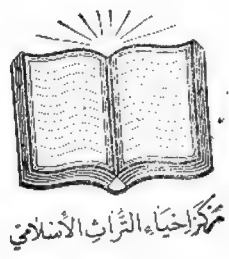 مَرْكَز إحْيَاءِ التُّرَاثِ الأَسْلَامِي